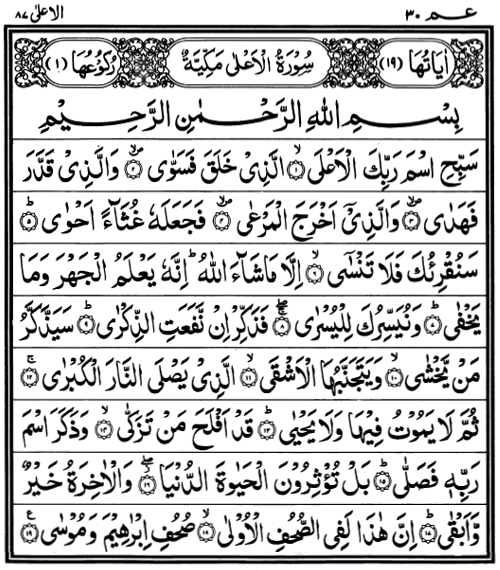 عـم ٣٠ الاعلى ٨٧
اٰيَاتُهَا (١٩) سُوْرَةُ الْاَعْلٰى مَكِّيَّةٌ رُكُوْعُهَا (١)
بِسْمِ اللهِ الرَّحْمٰنِ الرَّحِيْمِ
سَبِّحِ اسْمَ رَبِّكَ الْاَعْلَى ۙ﴿١﴾ الَّذِىْ خَلَقَ فَسَوّٰى ۪ۙ﴿٢﴾ وَالَّذِىْ قَدَّرَ
فَهَدٰى ۪ۙ﴿٣﴾ وَالَّذِىْۤ اَخْرَجَ الْمَرْعٰى ۪ۙ﴿٤﴾ فَجَعَلَهٗ غُثَآءً اَحْوٰى ؕ﴿٥﴾
سَنُقْرِئُكَ فَلَا تَنْسٰٓى ۙ﴿٦﴾ اِلَّا مَاشَآءَ اللهُ ؕ اِنَّهٗ يَعْلَمُ الْجَهْرَ وَمَا
يَخْفٰى ؕ﴿٧﴾ وَنُيَسِّرُكَ لِلْيُسْرٰى ۚۖ﴿٨﴾ فَذَكِّرْ اِنْ نَّفَعَتِ الذِّكْرٰى ؕ﴿٩﴾ سَيَذَّكَّرُ
مَنْ يَّخْشٰى ۙ﴿١٠﴾ وَيَتَجَنَّبُهَا الْاَشْقَى ۙ﴿١١﴾ الَّذِىْ يَصْلَى النَّارَ الْكُبْرٰى ۚ﴿١٢﴾
ثُمَّ لَا يَمُوْتُ فِيْهَا وَلَا يَحْيٰى ؕ﴿١٣﴾ قَدْ اَفْلَحَ مَنْ تَزَكّٰى ۙ﴿١٤﴾ وَذَكَرَ اسْمَ
رَبِّهٖ فَصَلّٰى ؕ﴿١٥﴾ بَلْ تُؤْثِرُوْنَ الْحَيٰوةَ الدُّنْيَا ۖ﴿١٦﴾ وَالْاٰخِرَةُ خَيْرٌ
وَّاَبْقٰى ؕ﴿١٧﴾ اِنَّ هٰذَا لَفِى الصُّحُفِ الْاُوْلٰى ۙ﴿١٨﴾ صُحُفِ اِبْرٰهِيْمَ وَمُوْسٰى ﴿١٩﴾ ع